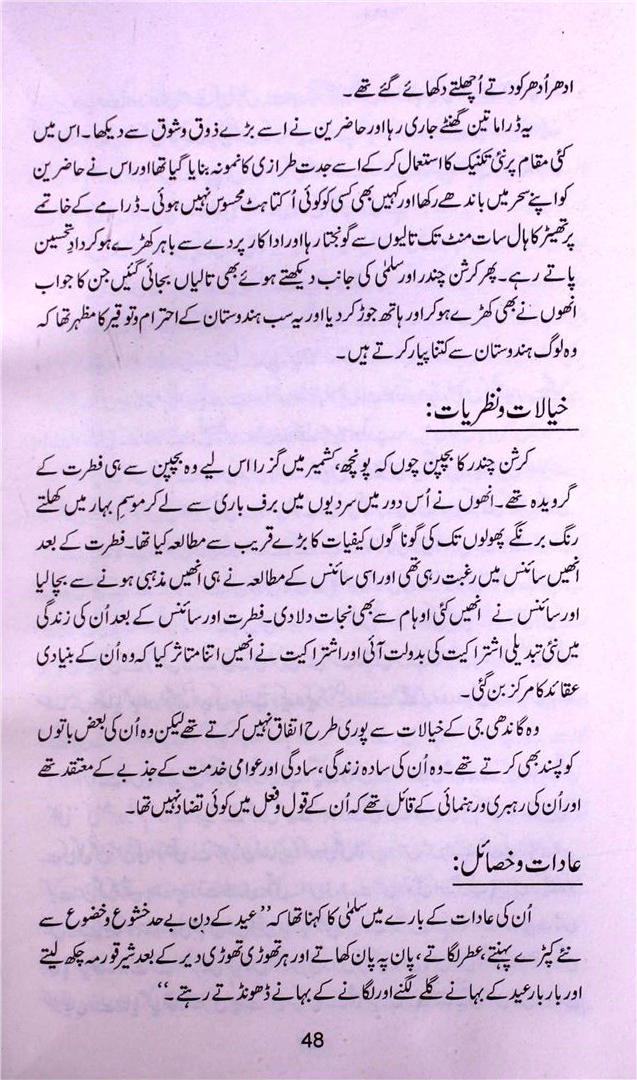 ادھر اُدھر کودتے اُچھلتے دکھائے گئے تھے۔
یہ ڈراما تین گھنٹے جاری رہا اور حاضرین نے اسے بڑے ذوق و شوق سے دیکھا۔ اس میں
کئی مقام پر نئی تکنیک کا استعمال کر کے اسے جدت طرازی کا نمونہ بنایا گیا تھا اور اس نے حاضرین
کو اپنے سحر میں باندھے رکھا اور کہیں بھی کسی کو کوئی اُکتاہٹ محسوس نہیں ہوئی۔ ڈرامے کے خاتمے
پر تھیٹر کا ہال سات منٹ تک تالیوں سے گونجتا رہا اور اداکار پردے سے باہر کھڑے ہو کر دادِ تحسین
پاتے رہے۔ پھر کرشن چندر اور سلمٰی کی جانب دیکھتے ہوئے بھی تالیاں بجائی گئیں جن کا جواب
انھوں نے بھی کھڑے ہو کر اور ہاتھ جوڑ کر دیا اور یہ سب ہندوستان کے احترام و توقیر کا مظہر تھا کہ
وہ لوگ ہندوستان سے کتنا پیار کرتے ہیں۔
خیالات و نظریات:
کرشن چندر کا بچپن چوں کہ پونچھ، کشمیر میں گزرا اس لیے وہ بچپن سے ہی فطرت کے
گرویدہ تھے۔ انھوں نے اُس دور میں سردیوں میں برف باری سے لے کر موسمِ بہار میں کھلتے
رنگ برنگے پھولوں تک کی گوناگوں کیفیات کا بڑے قریب سے مطالعہ کیا تھا۔ فطرت کے بعد
انھیں سائنس میں رغبت رہی تھی اور اسی سائنس کے مطالعہ نے ہی انھیں مذہبی ہونے سے بچا لیا
اور سائنس نے انھیں کئی اوہام سے بھی نجات دلا دی۔ فطرت اور سائنس کے بعد اُن کی زندگی
میں نئی تبدیلی اشتراکیت کی بدولت آئی اور اشتراکیت نے انھیں اتنا متاثر کیا کہ وہ اُن کے بنیادی
عقائد کا مرکز بن گئی۔
وہ گاندھی جی کے خیالات سے پوری طرح اتفاق نہیں کرتے تھے لیکن وہ اُن کی بعض باتوں
کو پسند بھی کرتے تھے۔ وہ اُن کی سادہ زندگی، سادگی اور عوامی خدمت کے جذبے کے معتقد تھے
اور اُن کی رہبری و رہنمائی کے قائل تھے کہ اُن کے قول و فعل میں کوئی تضاد نہیں تھا۔
عادات و خصائل:
اُن کی عادات کے بارے میں سلمٰی کا کہنا تھا کہ ”عید کے دن بے حد خشوع و خضوع سے
نئے کپڑے پہنتے، عطر لگاتے، پان پہ پان کھاتے اور ہر تھوڑی تھوڑی دیر کے بعد شیر قورمہ چکھ لیتے
اور بار بار عید کے بہانے گلے لگنے اور لگانے کے بہانے ڈھونڈتے رہتے۔“
48